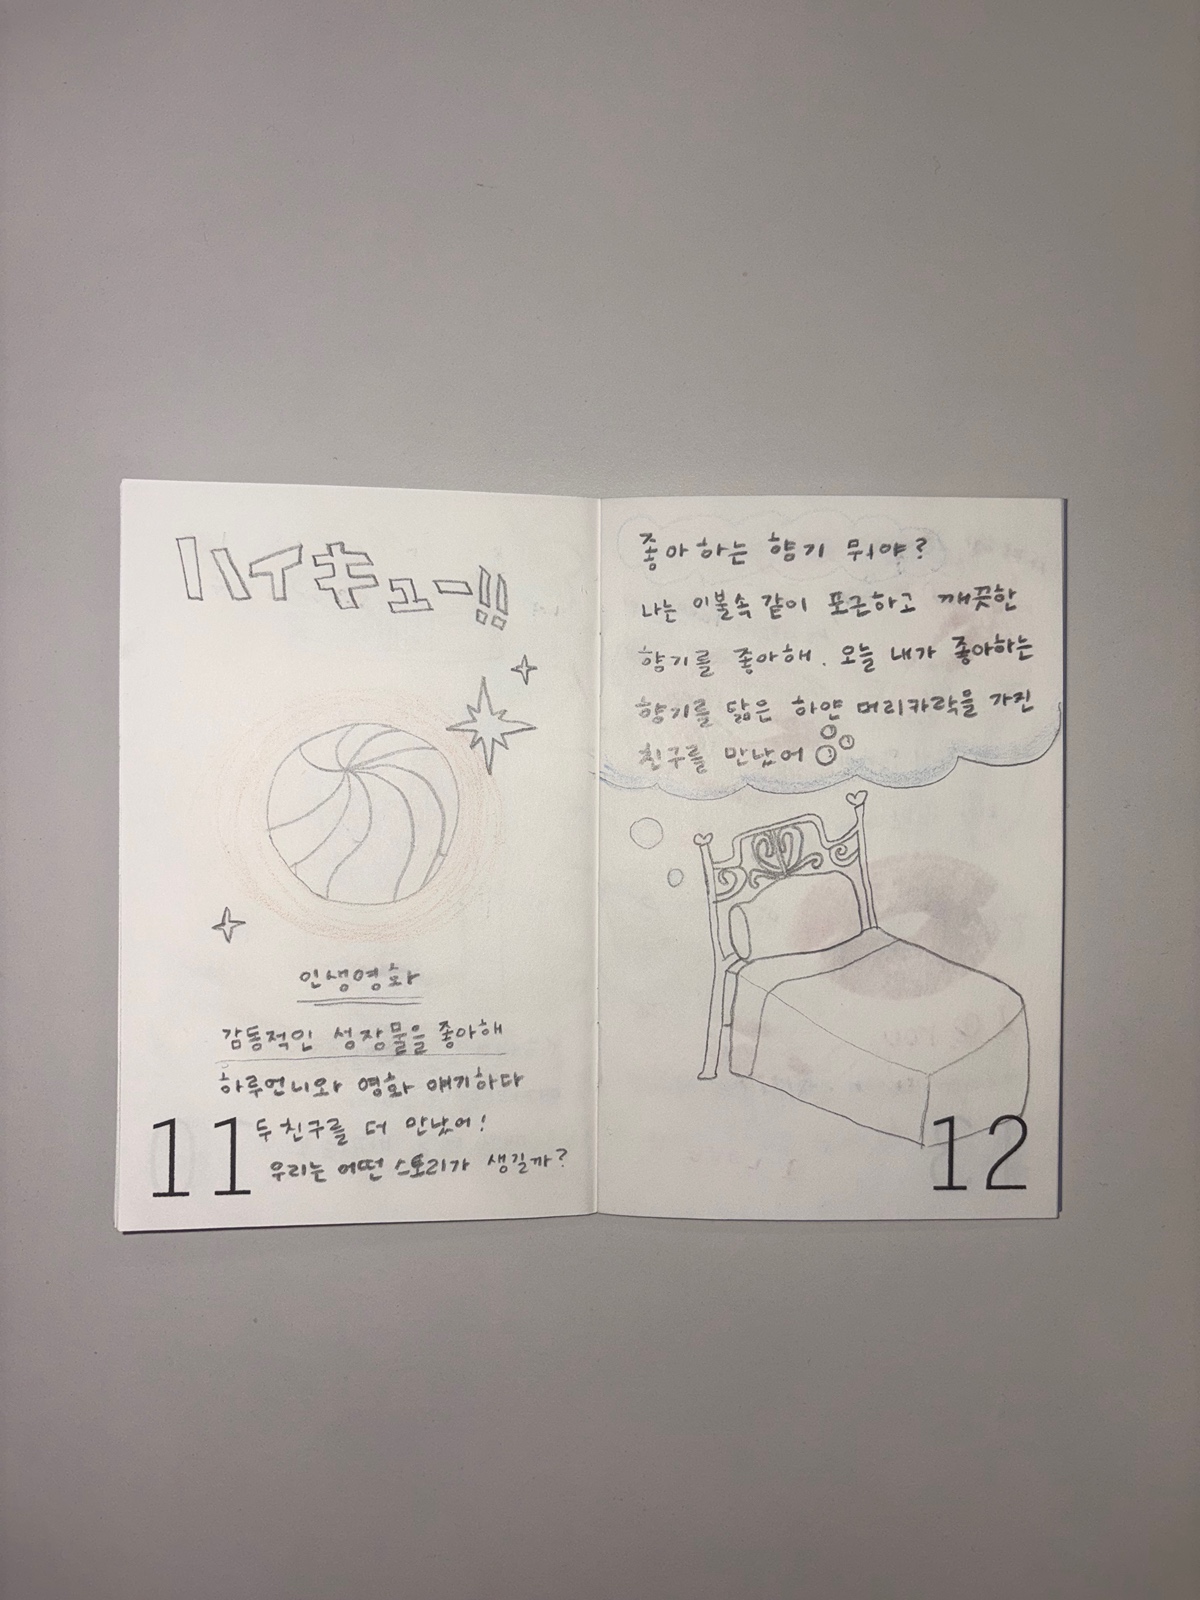 ハイキュー!!
인생영화
감동적인 성장물을 좋아해
하루언니와 영화 얘기하다
두 친구를 더 만났어!
우리는 어떤 스토리가 생길까?
11
좋아하는 향기 뭐야?
나는 이불속 같이 포근하고 깨끗한
향기를 좋아해. 오늘 내가 좋아하는
향기를 닮은 하얀 머리카락을 가진
친구를 만났어
12